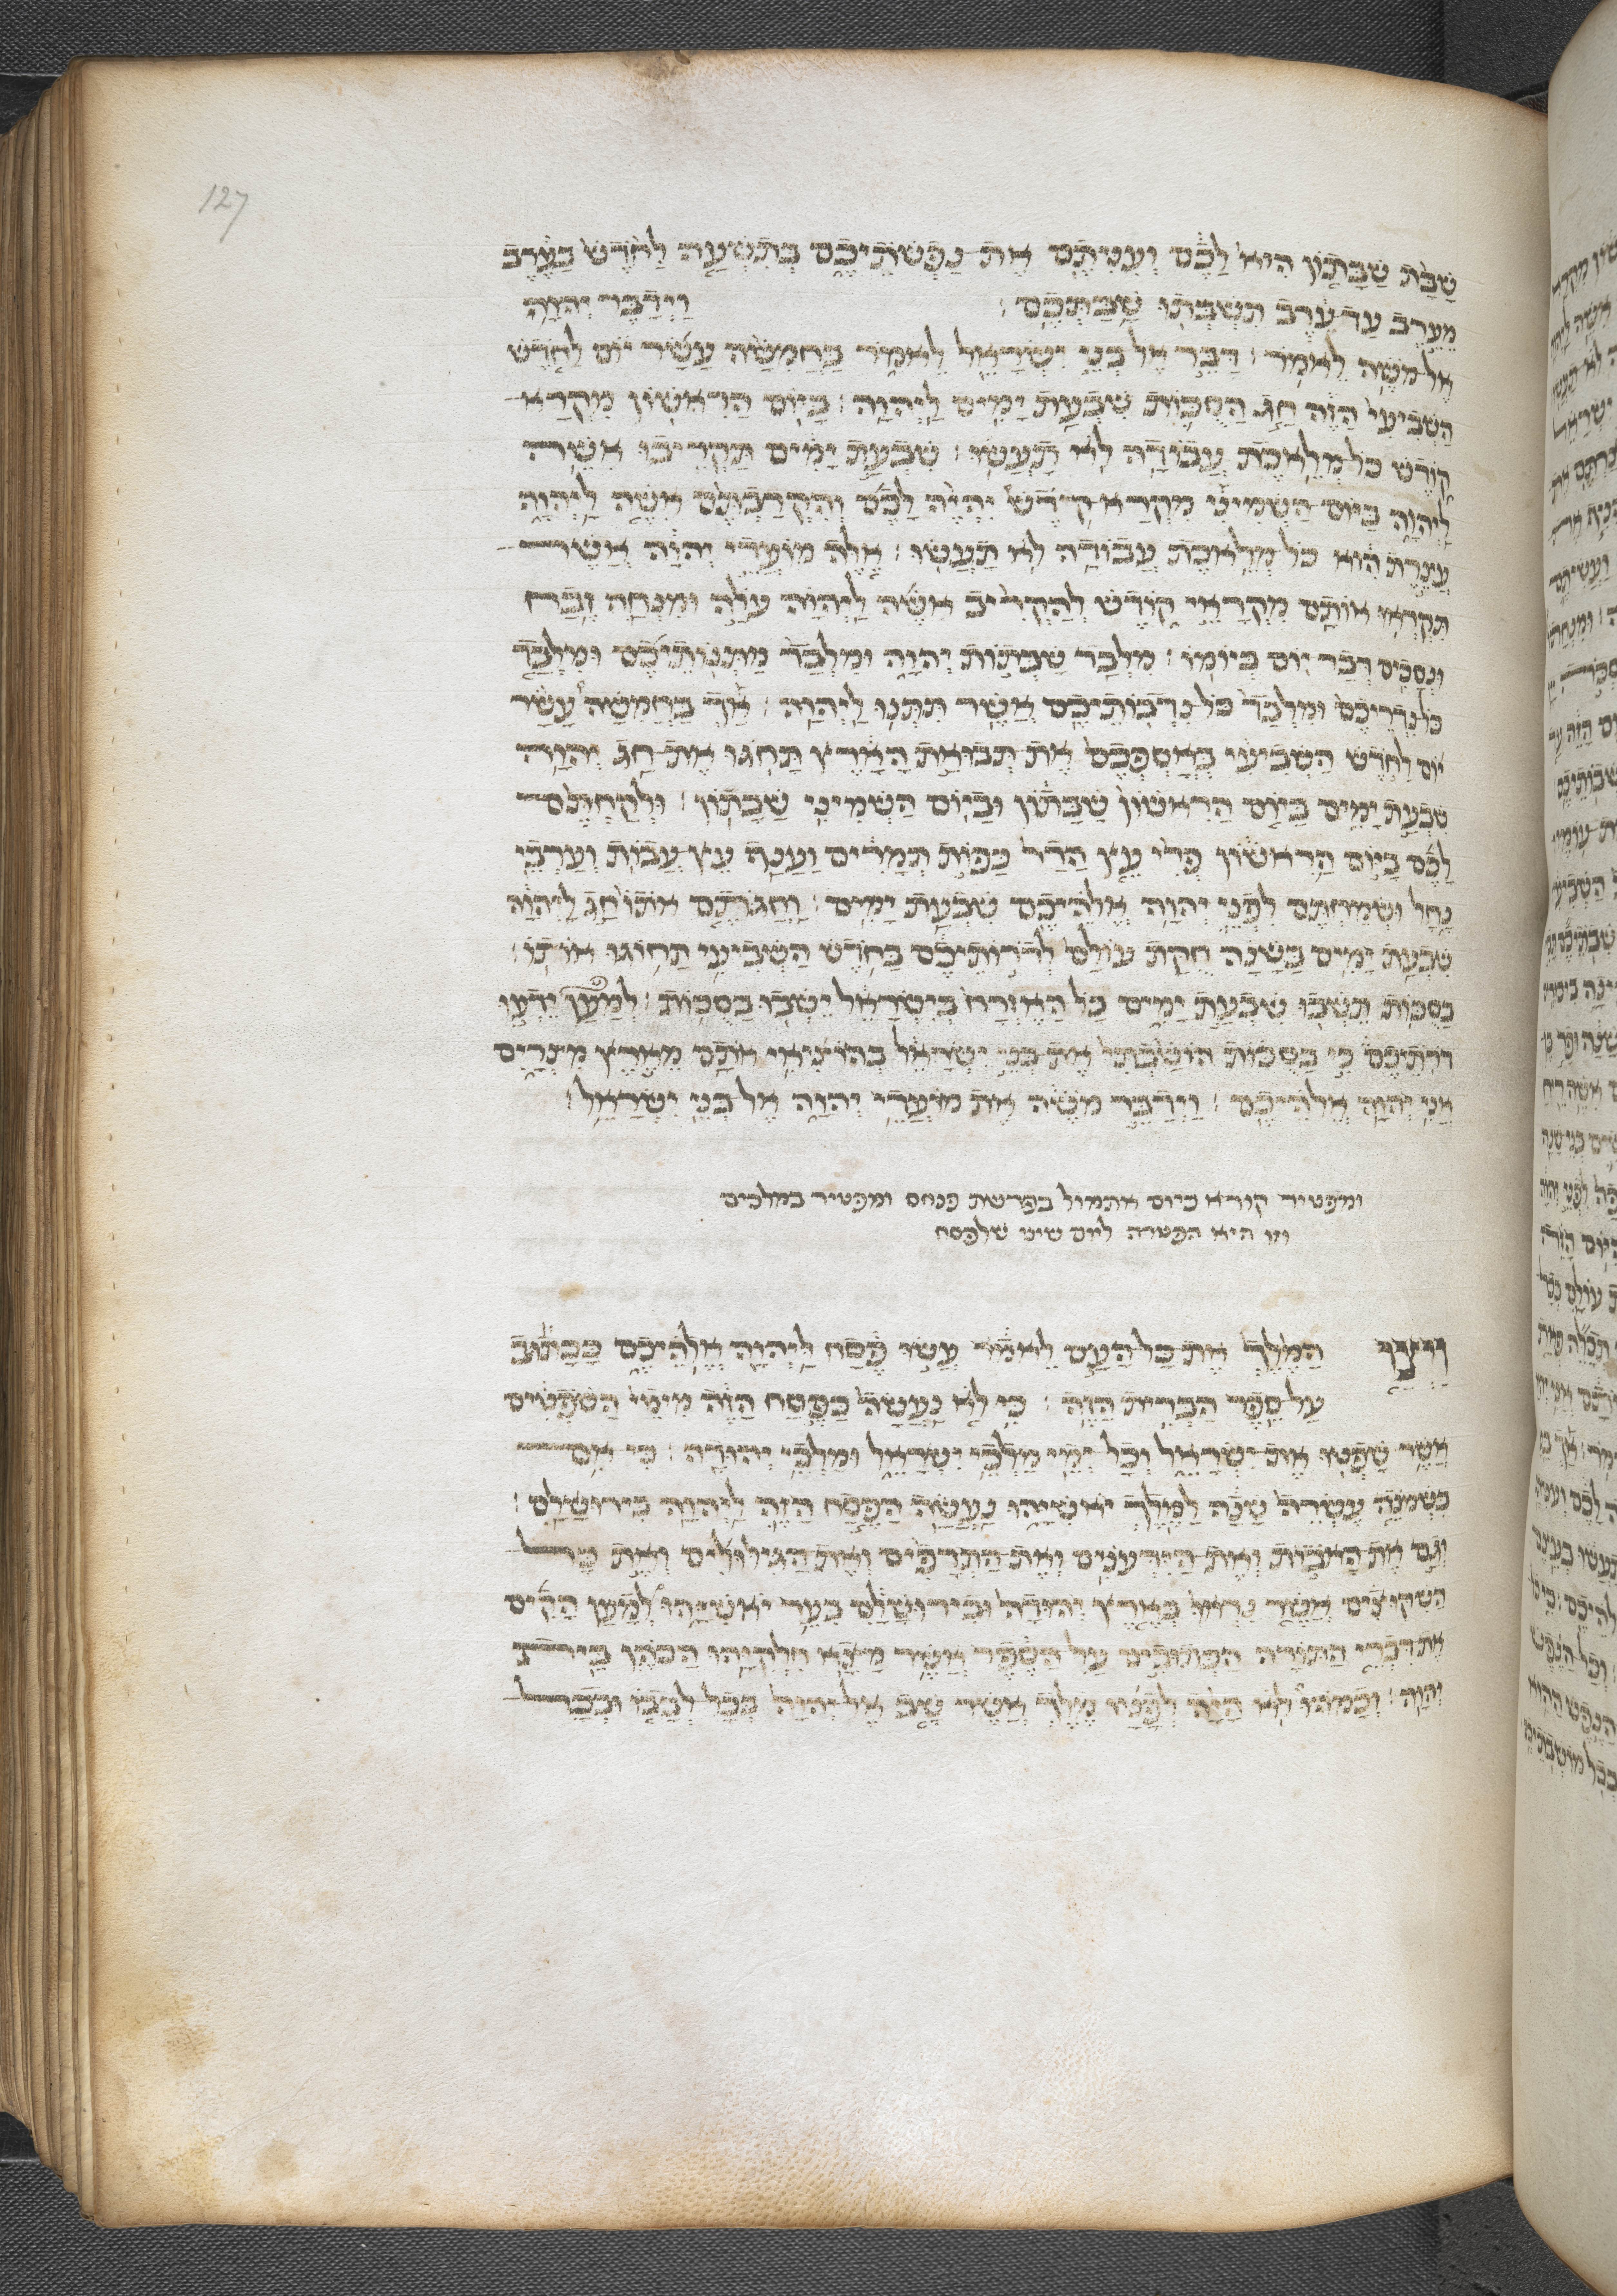 127
שַׁבַּת שַׁבָּתוֹן הִיא לָכֶם וְעִנִּיתֶם אֶת נַפְשֹׁתֵיכֶם בְּתִשְׁעָה לַחֹדֶשׁ בָּעֶרֶב
מֵעֶרֶב עַד עֶרֶב תִּשְׁבְּתוּ שַׁבַּתְּכֶם׃ וַיְדַבֵּר יְהוָה
אֶל מֹשֶׁה לֵּאמֹר׃ דַּבֵּר אֶל בְּנֵי יִשְׂרָאֵל לֵאמֹר בַּחֲמִשָּׁה עָשָׂר יוֹם לַחֹדֶשׁ
הַשְּׁבִיעִי הַזֶּה חַג הַסֻּכּוֹת שִׁבְעַת יָמִים לַיְהוָה׃ בַּיּוֹם הָרִאשׁוֹן מִקְרָא
קוֹדֶשׁ כָּל מְלֶאכֶת עֲבוֹדָה לֹא תַעֲשׂוּ׃ שִׁבְעַת יָמִים תַּקְרִיבוּ אִשֶּׁה
לַיְהוָה בַּיּוֹם הַשְּׁמִינִי מִקְרָא קֹדֶשׁ יִהְיֶה לָכֶם וְהִקְרַבְתֶּם אִשֶּׁה לַיְהוָה
עֲצֶרֶת הִוא כָּל מְלֶאכֶת עֲבוֹדָה לֹא תַעֲשׂוּ׃ אֵלֶּה מוֹעֲדֵי יְהוָה אֲשֶׁר
תִּקְרְאוּ אוֹתָם מִקְרָאֵי קוֹדֶשׁ לְהַקְרִיב אִשֶּׁה לַיהוָה עֹלָה וּמִנְחָה זֶבַח
וּנְסָכִים דְּבַר יוֹם בְּיוֹמוֹ׃ מִלְּבַד שַׁבְּתוֹת יְהוָה וּמִלְּבַד מַתְּנוֹתֵיכֶם וּמִלְּבַד
כָּל נִדְרֵיכֶם וּמִלְּבַד כָּל נִדְבוֹתֵיכֶם אֲשֶׁר תִּתְּנוּ לַיְהוָה׃ אַךְ בַּחֲמִשָּׁה עָשָׂר
יוֹם לַחֹדֶשׁ הַשְּׁבִיעִי בְּאָסְפְּכֶם אֶת תְּבוּאַת הָאָרֶץ תָּחֹגּוּ אֶת חַג יְהוָה
שִׁבְעַת יָמִים בַּיּוֹם הָרִאשׁוֹן שַׁבָּתוֹן וּבַיּוֹם הַשְּׁמִינִי שַׁבָּתוֹן׃ וּלְקַחְתֶּם
לָכֶם בַּיּוֹם הָרִאשׁוֹן פְּרִי עֵץ הָדָר כַּפּוֹת תְּמָרִים וַעֲנַף עֵץ עָבוֹת וְעַרְבֵי
נָחַל וּשְׂמַחְתֶּם לִפְנֵי יְהוָה אֱלֹהֵיכֶם שִׁבְעַת יָמִים׃ וְחַגֹּתֶם אֹתוֹ חַג לַיהוָה
שִׁבְעַת יָמִים בַּשָּׁנָה חֻקַּת עוֹלָם לְדֹרוֹתֵיכֶם בַּחֹדֶשׁ הַשְּׁבִיעִי תָּחוֹגּוּ אוֹתוֹ׃
בַּסֻּכּוֹת תֵּשְׁבוּ שִׁבְעַת יָמִים כָּל הָאֶזְרָח בְּיִשְׂרָאֵל יֵשְׁבוּ בַּסֻּכּוֹת׃ לְמַעַן יֵדְעוּ
דֹרֹתֵיכֶם כִּי בַסֻּכּוֹת הוֹשַׁבְתִּי אֶת בְּנֵי יִשְׂרָאֵל בְּהוֹצִיאִי אֹתָם מֵאֶרֶץ מִצְרָיִם
אֲנִי יְהוָה אֱלֹהֵיכֶם׃ וַיְדַבֵּר מֹשֶׁה אֶת מוֹעֲדֵי יְהוָה אֶל בְּנֵי יִשְׂרָאֵל׃
ומפטיר קורא כיום אתמול בפרשת פנחס ומפטיר במלכים
וזו היא הפטרה ליום שיני שלפסח
וַיְצַו הַמֶּלֶךְ אֶת כָּל הָעָם לֵאמֹר עֲשׂוּ פֶסַח לַיְהוָה אֱלֹהֵיכֶם כַּכָּתוּב
עַל סֵפֶר הַבְּרִית הַזֶּה׃ כִּי לֹא נַעֲשָׂה כַּפֶּסַח הַזֶּה מִימֵי הַשֹּׁפְטִים
אֲשֶׁר שָׁפְטוּ אֶת יִשְׂרָאֵל וְכֹל יְמֵי מַלְכֵי יִשְׂרָאֵל וּמַלְכֵי יְהוּדָה׃ כִּי אִם
בִּשְׁמֹנֶה עֶשְׂרֵה שָׁנָה לַמֶּלֶךְ יֹאשִׁיָּהוּ נַעֲשָׂה הַפֶּסַח הַזֶּה לַיהוָה בִּירוּשָׁלָםִ׃
וְגַם אֶת הָאֹבוֹת וְאֶת הַיִּדְּעֹנִים וְאֶת הַתְּרָפִים וְאֶת הַגִּילּוּלִים וְאֵת כָּל
הַשִּׁקּוּצִים אֲשֶׁר נִרְאוּ בְּאֶרֶץ יְהוּדָה וּבִירוּשָׁלַםִ בִּעֵר יֹאשִׁיָּהוּ לְמַעַן הָקִים
אֶת דִּבְרֵי הַתּוֹרָה הַכְּתוּבִים עַל הַסֵּפֶר אֲשֶׁר מָצָא חִלְקִיָּהוּ הַכֹּהֵן בֵּית
יְהוָה׃ וְכָמֹהוּ לֹא הָיָה לְפָנָיו מֶלֶךְ אֲשֶׁר שָׁב אֶל יְהוָה בְּכָל לְבָבוֹ וּבְכָל